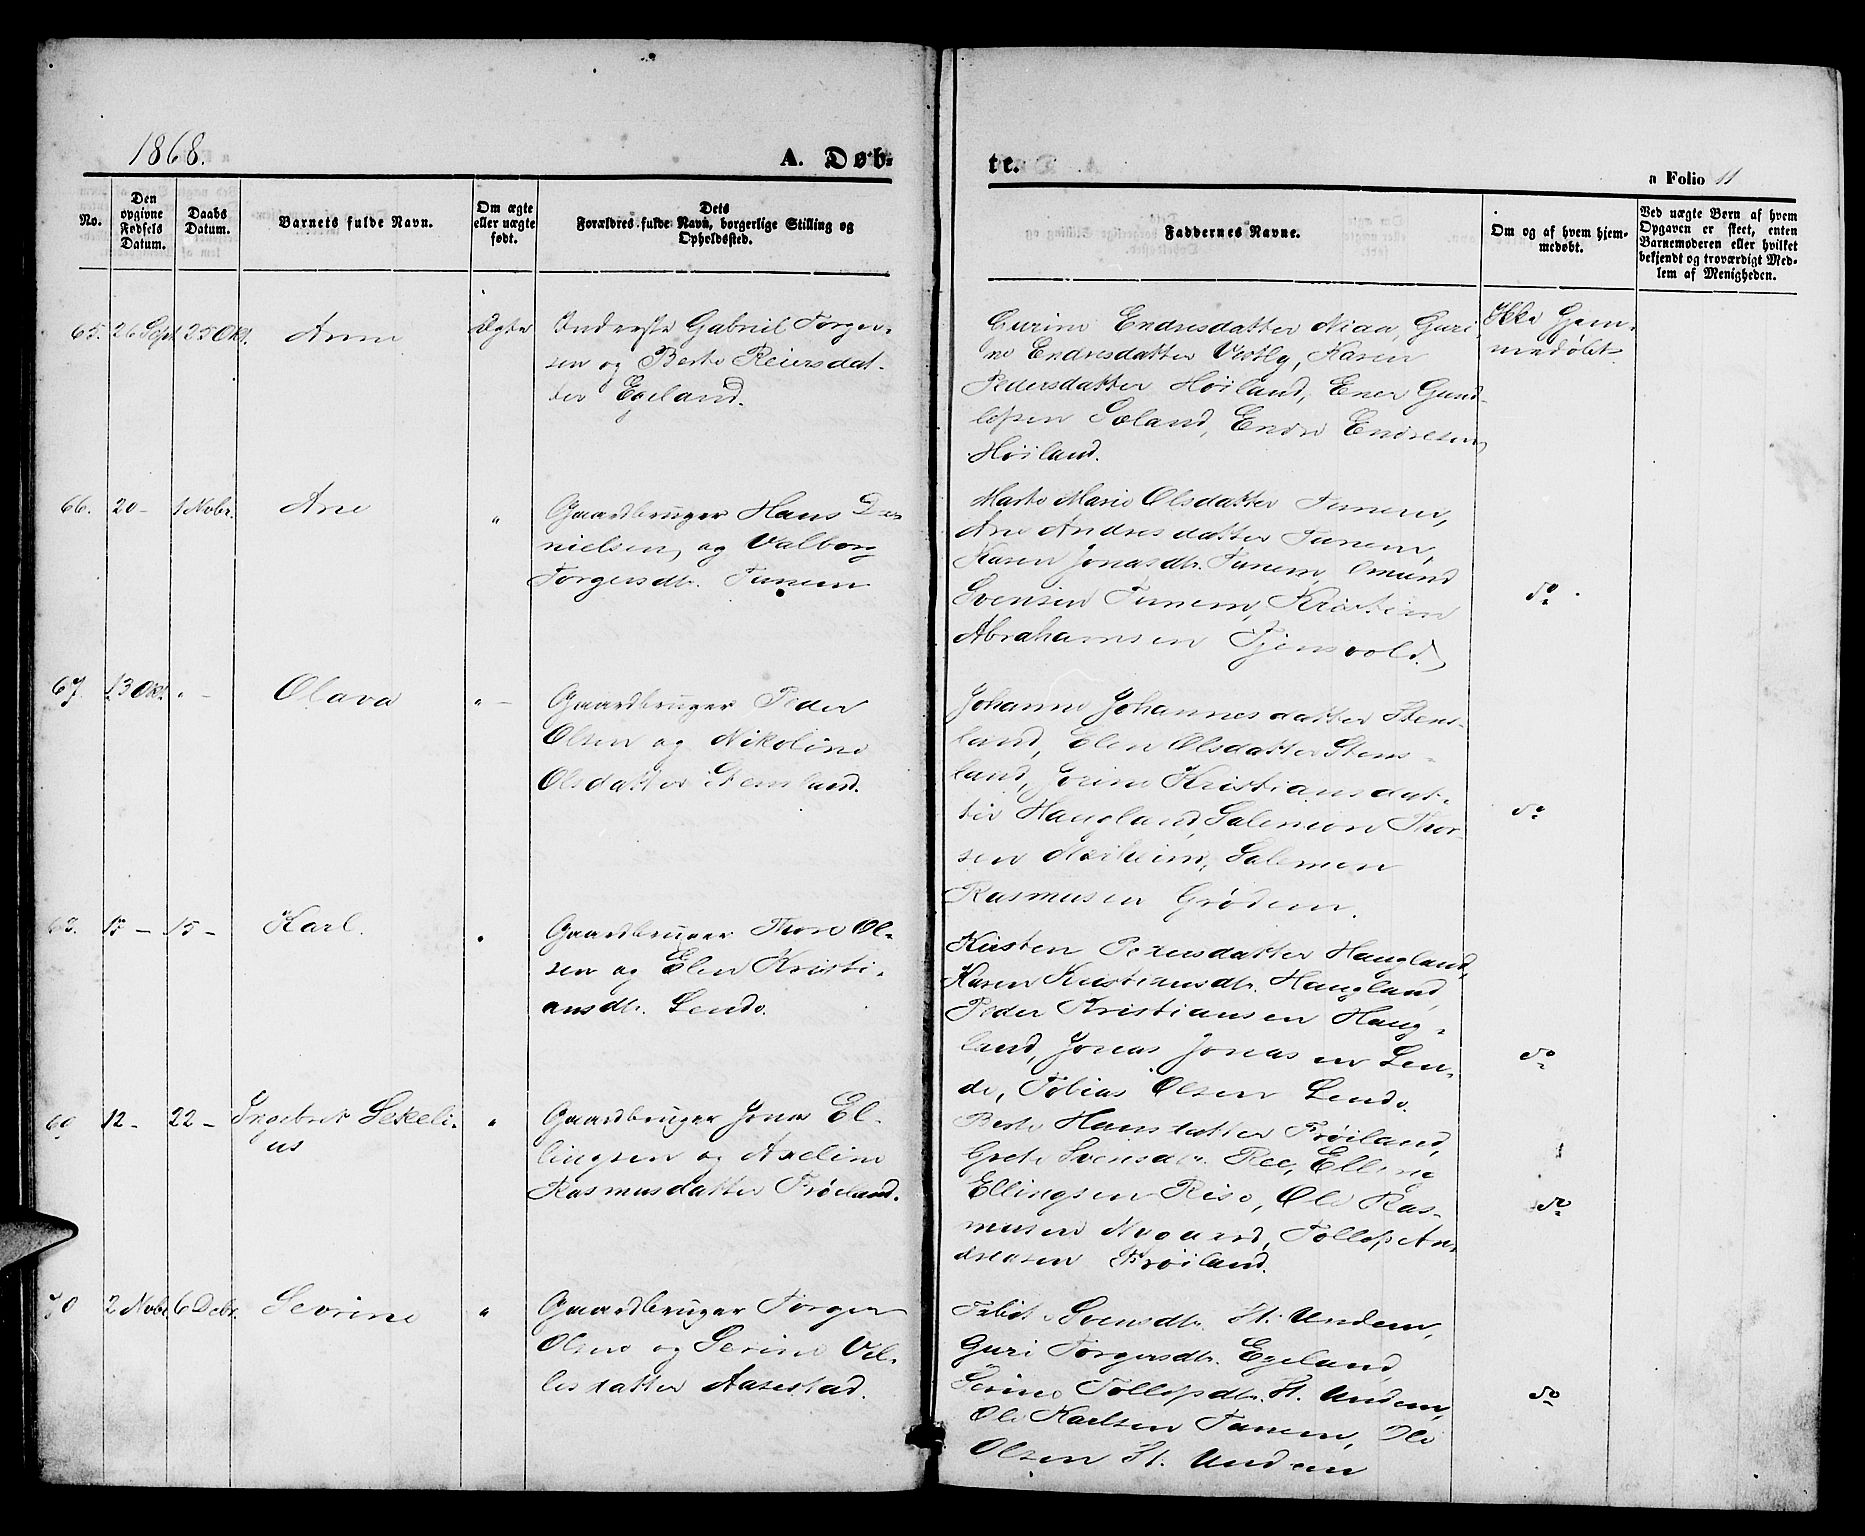 1868.
A. Døb-
te.
a Folio 11
No.
Den
opgivne
Fødsels
Datum.
Daabs
Datum.
Barnets fulde Navn.
Om ægte
eller uægte
født.
Dets
Forældres fulde Navn, borgerlige Stilling og
Opholdssted.
Faddernes Navne.
Om og af hvem hjem-
medøbt.
Ved uægte Børn af hvem
Opgaven er skeet, enten
Barnemoderen eller hvilket
bekjendt og troværdigt Med-
lem af Menigheden.
65. 26 Sept. 25 Okt. Anne Ægte
Inderste Gabriel Torger-
sen og Berte Reiersdat-
ter Egeland.
Endresdatter Guri-
ne Endresdatter Vestly, Karen
Pedersdatter Høiland, Ener Gund-
lefsen Soland, Endre Endresen
Høiland.
Ikke hjem-
medøbt.
66. 20 - 1 Nobr. Ane "
Gaardbruger Hans Da-
nielsen, og Valborg
Torgersdtr. Tunem
Marte Marie Olsdatter Tunem,
Ane Andresdatter Tunem,
Karen Jonasdtr. Tunem, Omund
Svensen Tunem, Kristian
Abrahamsen Tjensvold.
do
67. 13 Okt. " - Olava " -
Gaardbruger Peder
Olsen og Nikoline
Olsdatter Stensland.
Johanne Johannesdatter Stens-
land, Elen Olsdatter Stens-
land, Jorine Kristiansdat-
ter Haugland, Salemon Thor-
sen Salemon
Rasmusen Grødem.
do
68. 15 - 15 - Karl. "
Gaardbruger Thore Ol-
sen og Elen Kristi-
ansdtr. Lende.
Kirsten Petersdatter Haugland,
Karen Kristiansdtr. Haugland
Peder Kristiansen Haug-
land, Jonas Jonasen Len-
de, Tobias Olsen Lende.
do
69 12 - 22 - Ingebret Sekeli-
us "
Gaardbruger Jonas El-
lingsen og Axeline
Rasmusdatter Frøiland.
Berte Hansdatter Frøiland,
Grete Svensdtr. Ree, Elling
Ellingsen Rise, Ole Ras-
musen Nygaard, Tollef An-
dreasen Frøiland.
do
70 2 Nobr. 6 Debr. Sevrine "
Gaardbruger Torger
Olsen og Serine Vel-
lesdatter Aasestad.
Svensdtr. St. Undem,
Guri Torgersdtr. Egeland,
Serine Tollefsdtr. St. Undem,
Ole Karlsen Tunem, Ole
Olsen St. Undem
do